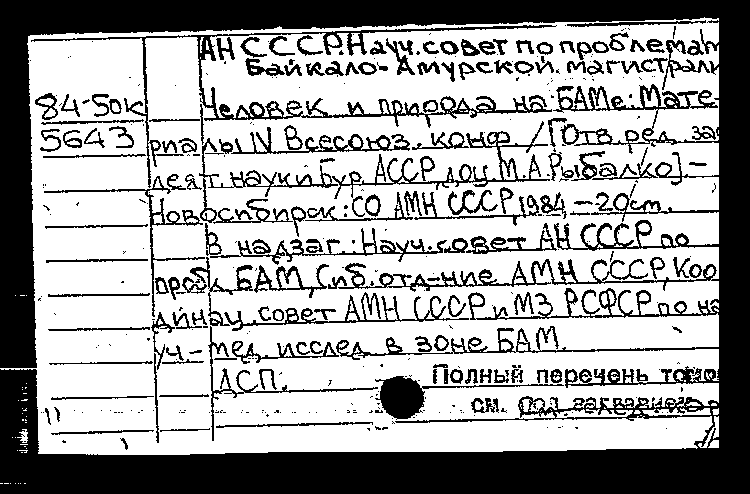 АН СССР. Науч. совет по проблемам
Байкало-Амурской магистрали
84-50к Человек и природа на БАМе: Мате-
5643 риалы IV Всесоюз. конф. / [Отв. ред. за
деят. науки Бур. АССР, доц. М.А. Рыбалко]. –
Новосибирск: СО АМН СССР, 1984. – 20 см.
В надзаг.: Науч. совет АН СССР по
пробл. БАМ, Сиб. отд-ние АМН СССР, Коо
динац. совет АМН СССР и МЗ РСФСР по на
уч.-мед. исслед. в зоне БАМ.
ДСП. Полный перечень томо
см. под заглавием